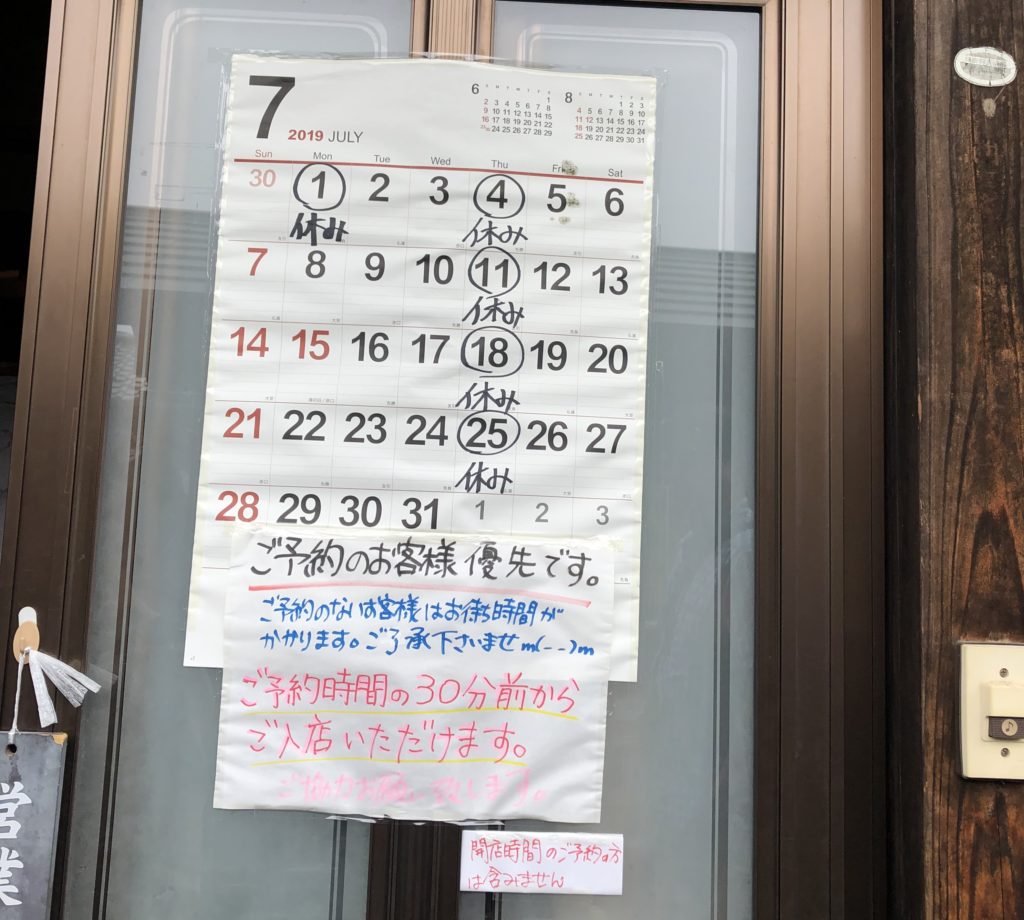 7
2019 JULY
6
S M T W T F S
1
2 3 4 5 6 7 8
9 10 11 12 13 14 15
16 17 18 19 20 21 22
24 25 26 27 28 29
8
S M T W T F S
1 2 3
4 5 6 7 8 9 10
11 12 13 14 15 16 17
18 19 20 21 22 23 24
25 26 27 28 29 30 31
Sun Mon Tue Wed Thu Fri Sat
30 1 2 3 4 5 6
休み 休み
7 8 9 10 11 12 13
休み
14 15 16 17 18 19 20
休み
21 22 23 24 25 26 27
休み
28 29 30 31 1 2 3
ご予約のお客様優先です。
ご予約のないお客様はお待ち時間が
かかります。ご了承下さいませm(--)m
ご予約時間の30分前から
ご入店いただけます。
ご協力お願い致します。
開店時間のご予約の方
は含みません
営業